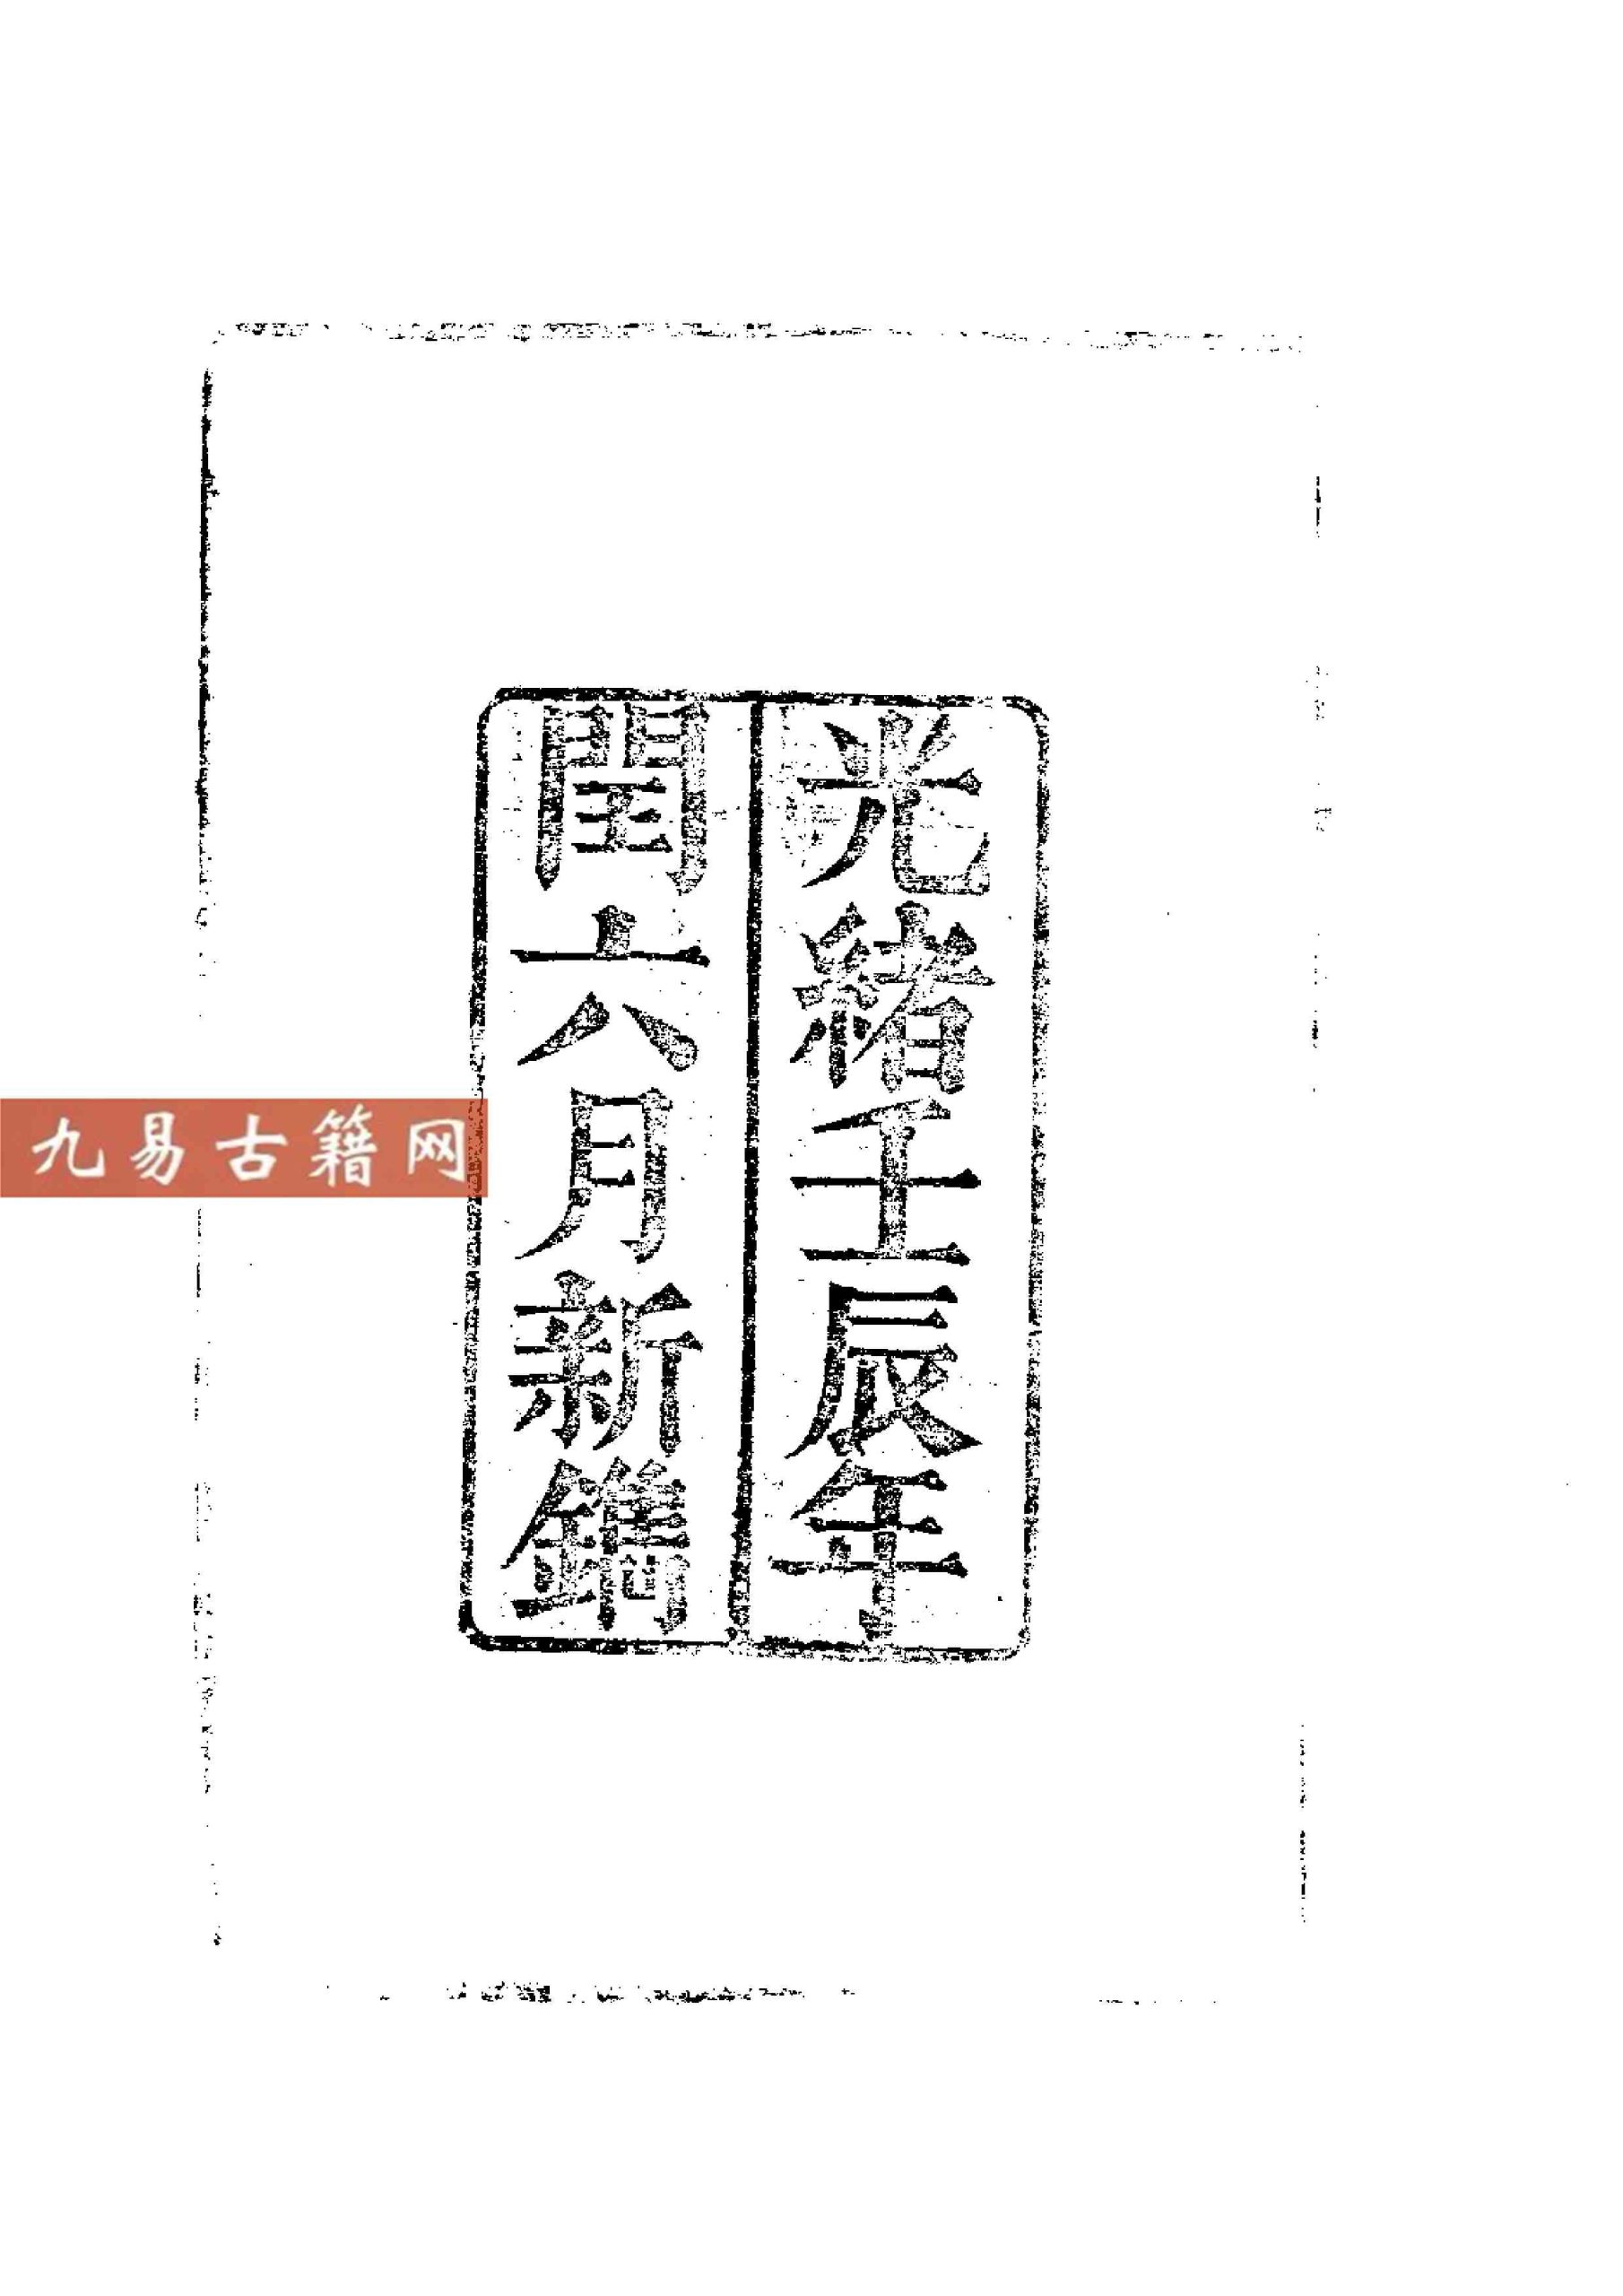 光緒壬辰年
閏六月新鐫
九易古籍网